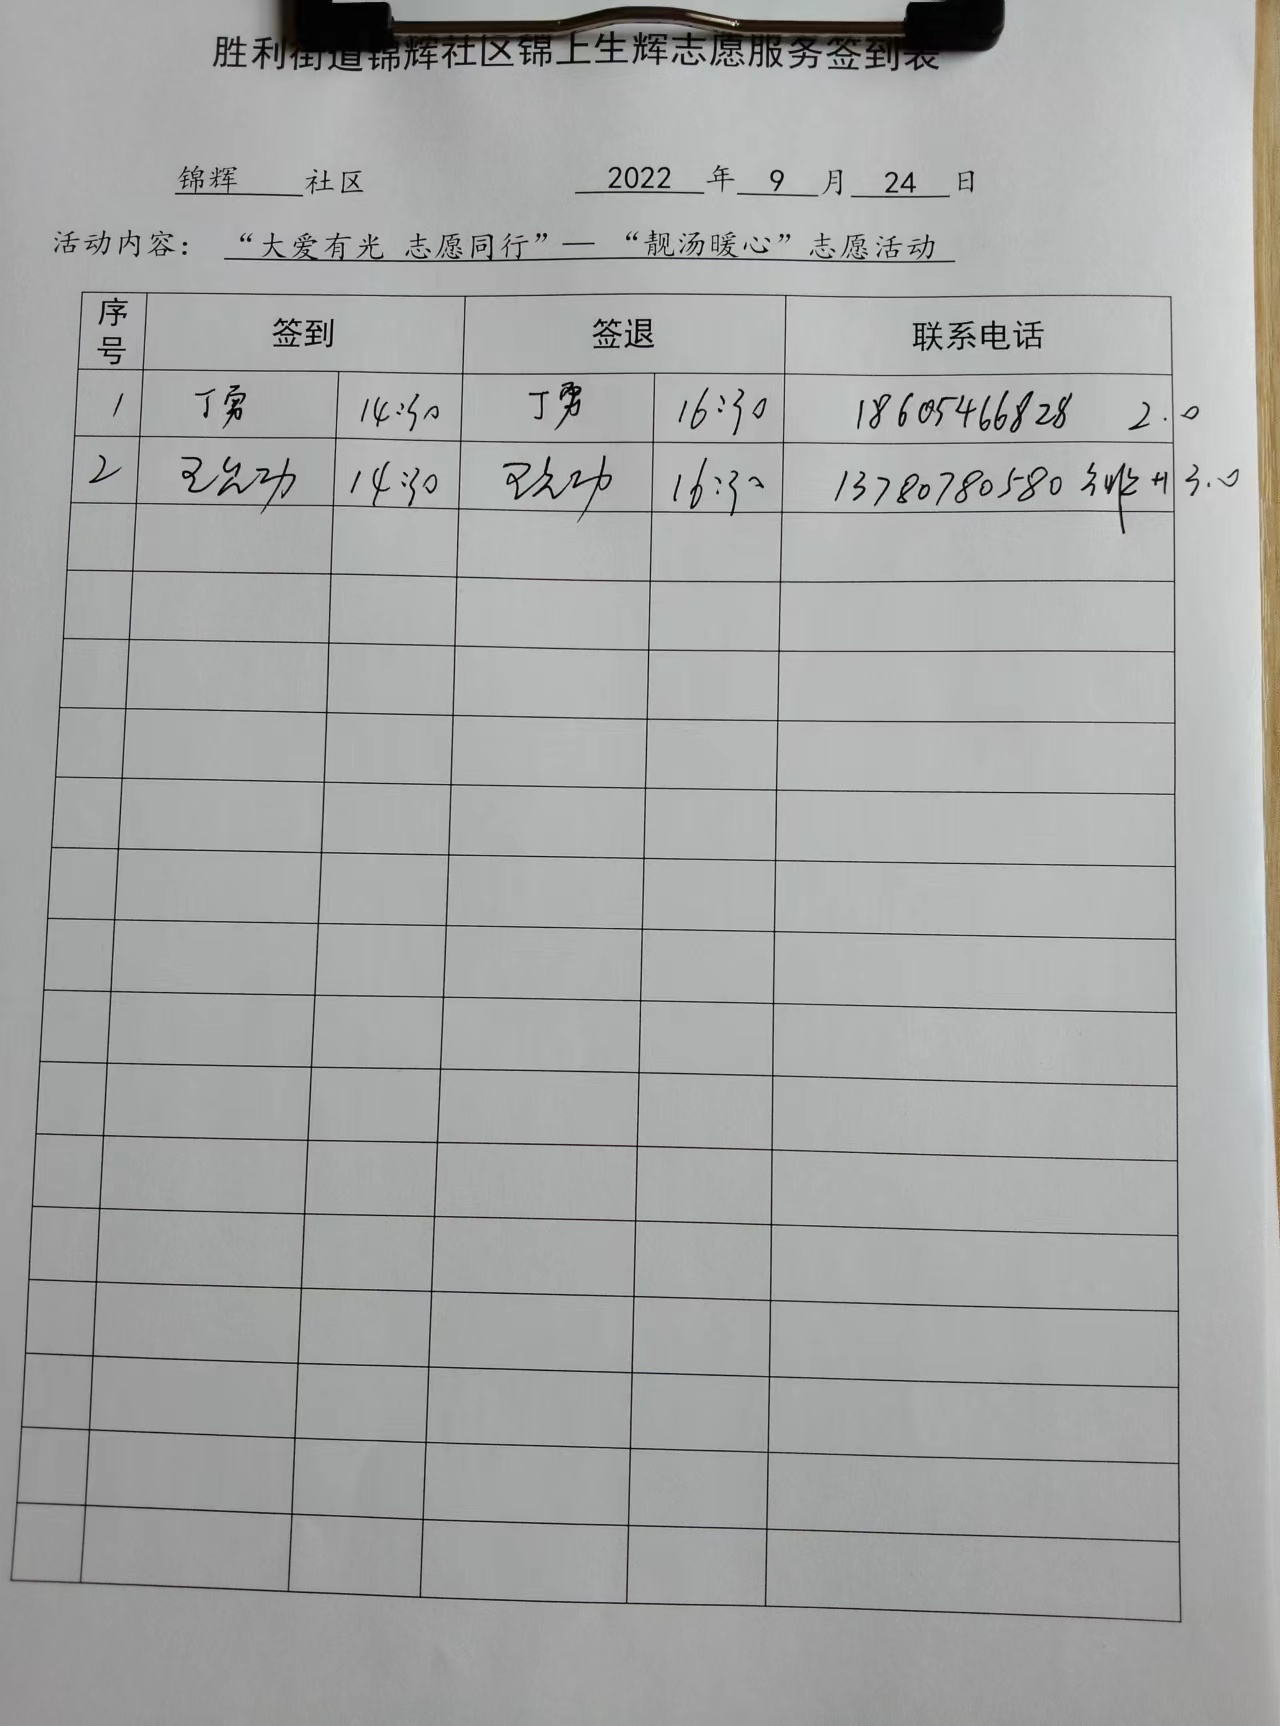 胜利街道锦辉社区锦上生辉志愿服务签到表
锦辉 社区 2022 年 9 月 24 日
活动内容：“大爱有光 志愿同行”—“靓汤暖心”志愿活动
序号 签到 签退 联系电话
1 丁勇 14:30 丁勇 16:30 18605466828 2.0
2 王 功 14:30 王 功 16:30 13780780580 3.0